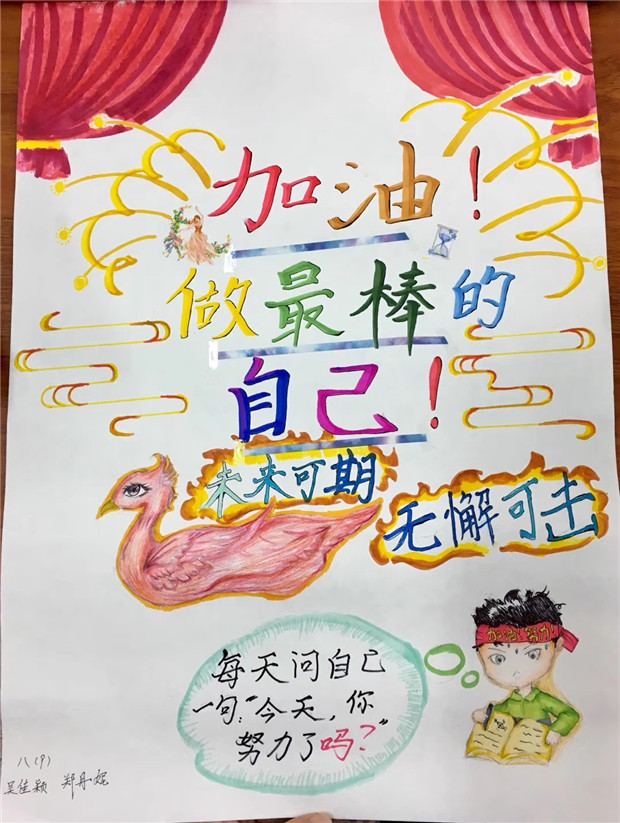 加油！
做最棒的
自己！
未来可期
无懈可击
加油 努力!
每天问自己
一句："今天，你
努力了吗?"
八(9)
吴佳颖 郑丹妮